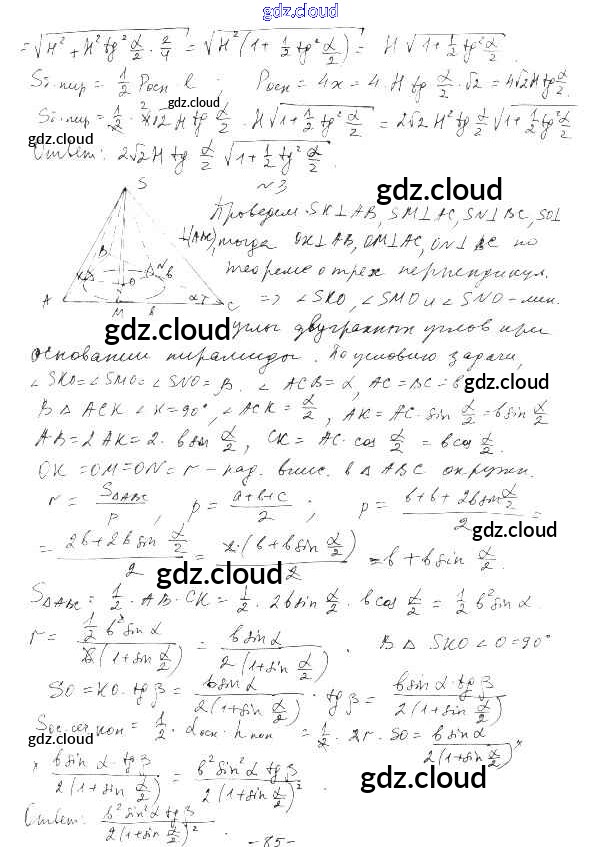 gdz.cloud
= √(H² + H² tg² α/2 · 2/4) = √(H²(1 + 1/2 tg² α/2)) = H √(1 + 1/2 tg² α/2)
Sб.пир = 1/2 Pосн l; Pосн = 4x = 4 · H tg α/2 · √2 = 4√2 H tg α/2
gdz.cloud
Sб.пир = 1/2 · 4√2 H tg α/2 · H √(1 + 1/2 tg² α/2) = 2√2 H² tg α/2 √(1 + 1/2 tg² α/2)
gdz.cloud gdz.cloud
Ответ: 2√2 H² tg α/2 √(1 + 1/2 tg² α/2).
№3
gdz.cloud
S
Проведем SK⊥AB, SM⊥AC, SN⊥BC, SO⊥
⊥(ABC), тогда OK⊥AB, OM⊥AC, ON⊥BC по
B K N O b
теореме о трех перпендикул.
A M b α C
=> ∠SKO, ∠SMO и ∠SNO – лин.
gdz.cloud gdz.cloud
углы двугранных углов при
основании пирамиды. По условию задачи,
∠SKO = ∠SMO = ∠SNO = β. ∠ACB = α, AC = BC = b
gdz.cloud
В △ ACK ∠K = 90°, ∠ACK = α/2, AK = AC · sin α/2 = b sin α/2
AB = 2AK = 2 · b sin α/2, CK = AC · cos α/2 = b cos α/2.
OK = OM = ON = r – рад. впис. в △ ABC окружн.
gdz.cloud
r = S△ABC/p, p = (a+b+c)/2; p = (b + b + 2b sin α/2)/2 =
gdz.cloud
= (2b + 2b sin α/2)/2 = 2·(b + b sin α/2)/2 = b + b sin α/2.
gdz.cloud
S△ABC = 1/2 · AB · CK = 1/2 · 2b sin α/2 · b cos α/2 = 1/2 b² sin α.
r = (1/2 b² sin α)/(b(1 + sin α/2)) = b sin α/(2(1 + sin α/2)). В △ SKO ∠O = 90°
gdz.cloud
SO = KO · tg β = b sin α/(2(1 + sin α/2)) · tg β = b sin α · tg β/(2(1 + sin α/2))
Sос.сеч.кон = 1/2 · dосн · hкон = 1/2 · 2r · SO = b sin α/(2(1 + sin α/2)) ×
gdz.cloud
× b sin α · tg β/(2(1 + sin α/2)) = b² sin² α tg β/(2(1 + sin α/2)²).
gdz.cloud
Ответ: b² sin² α tg β/(2(1 + sin α/2)²).
gdz.cloud
gdz.cloud
- 85 -